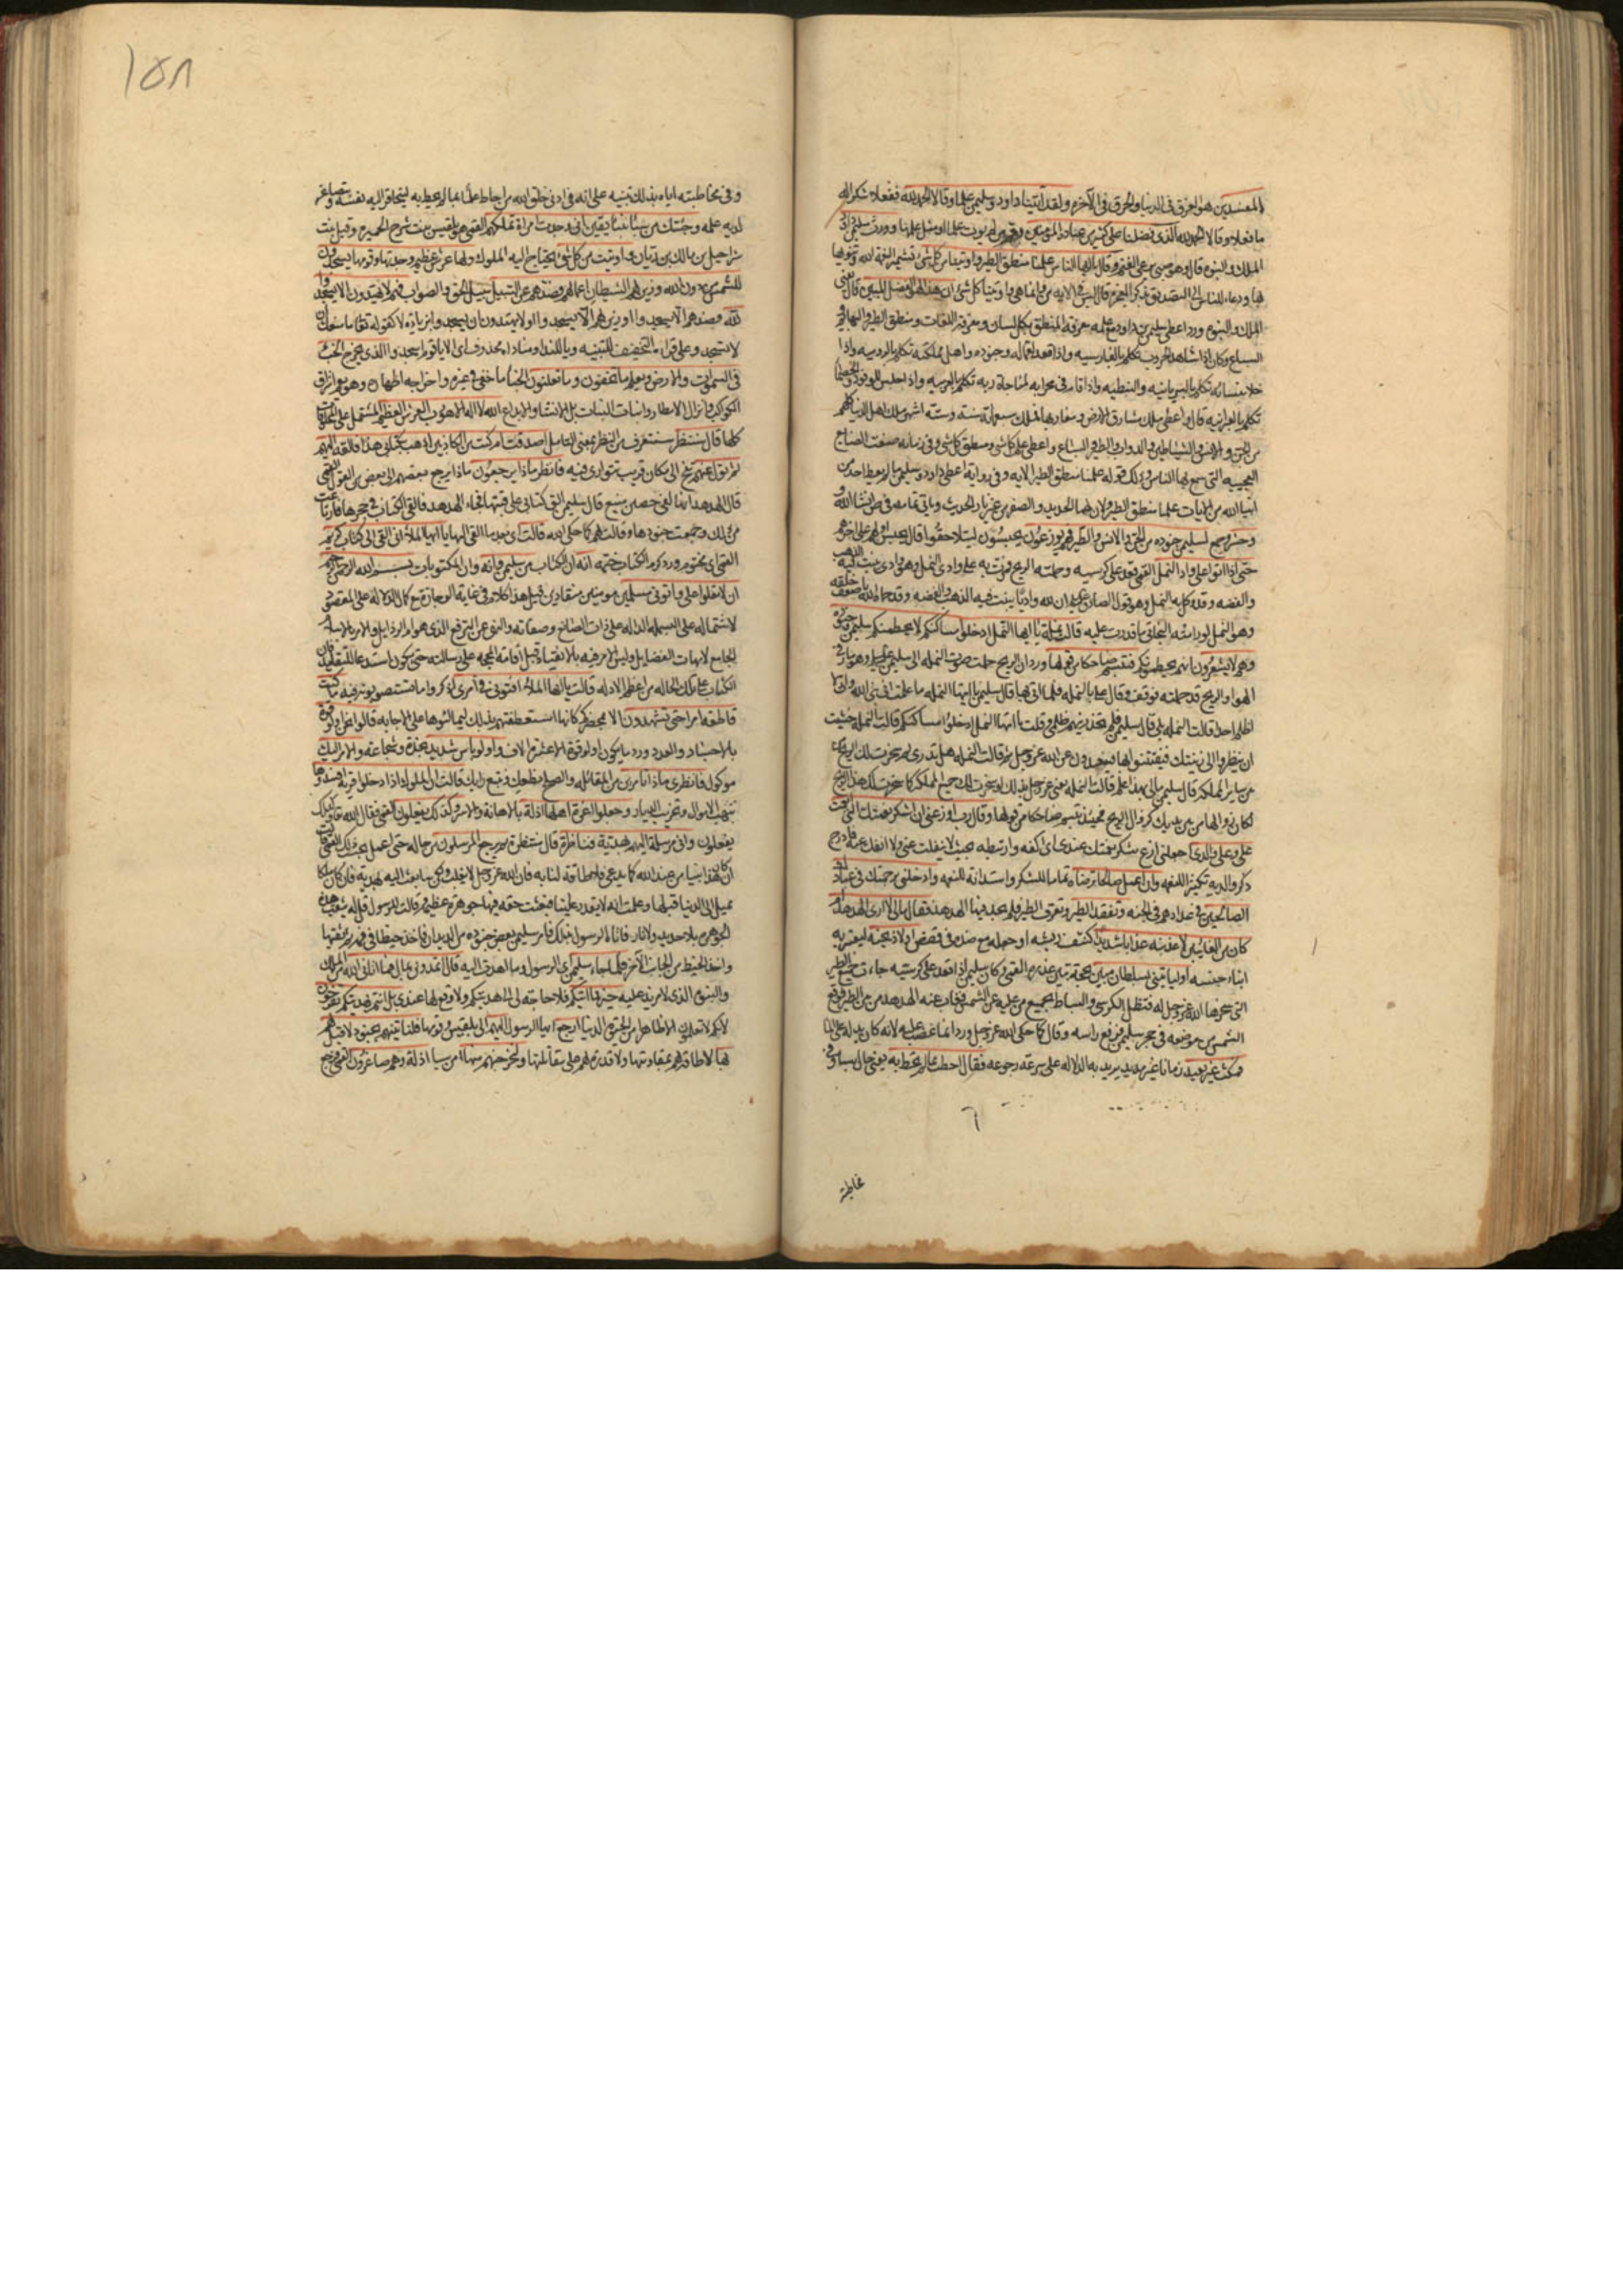 المفسدين هو الحرق في الدنيا والحرق في الآخرة ولقد آتينا داود وسليمن علما وقالا الحمد لله ففعلا شكرا له
ما فعلا وقالا الحمد لله الذي فضلنا على كثير من عباده المؤمنين من لم يؤت علما او مثل علمنا وورث سليمن داود
الملك والنبوة قال وهو صبي يرعى الغنم وقال يا ايها الناس علمنا منطق الطير واوتينا من كل شئ تشهير النعمة الله وتنويها
بها ودعاء للناس الى التصديق بذكر المعجزة قال ليس في الاية من وانما هي واوتينا كل شئ ان هذا لهو الفضل المبين قال يعني
الملك والنبوة ورد اعطي سليمن بن داود مع علمه معرفة المنطق بكل لسان ومعرفة اللغات ومنطق الطير والبهائم
والسباع وكان اذا شاهد الحروب تكلم بالفارسيه واذا قعد لعماله وجنوده واهل مملكته تكلم بالروميه واذا
خلا بنسائه تكلم بالسريانيه والنبطيه واذا قام في محرابه لمناجاة ربه تكلم بالعربيه واذا جلس للوفود والخصماء
تكلم بالعبرانيه قال واعطي ملك مشارق الارض ومغاربها فملك سبعمائة سنة وستة اشهر ملك اهل الدنيا كلهم
من الجن والانس والشياطين والدواب والطير والسباع واعطي علم كل شئ ومنطق كل شئ وفي زمانه صنعت الصنايع
العجيبه التي سمع بها الناس وذلك قوله علمنا منطق الطير الايه وفي رواية اعطي داود وسليمن ما لم يعط احد من
انبياء الله من الايات علما منطق الطير والان لهما الحديد والصفر من غير نار الحديث وياتي تمامه في ص انشاء الله
وحشر وجمع لسليمن جنوده من الجن والانس والطير فهم يوزعون يحبسون ليتلاحقوا قال يحبس اولهم على اخرهم
حتى اذا اتوا على واد النمل القمي قعد على كرسيه وحملته الريح فمرت به على وادي النمل وهو وادي ينبت فيه الذهب
والفضه وقد وكل به النمل وهو قول الصادق ان لله واديا ينبت فيه الذهب والفضه وقد حماه الله باضعف خلقه
وهو النمل لو رامته البخاتي ما قدرت عليه قالت نملة يا ايها النمل ادخلوا مساكنكم لا يحطمنكم سليمن وجنوده
وهم لا يشعرون انهم يحطمونكم فتبسم ضاحكا من قولها ورد ان الريح حملت صوت النملة الى سليمن وهو مار في
الهواء والريح قد حملته فوقف وقال علي بالنملة فلما اتي بها قال سليمن يا ايتها النملة ما علمت اني نبي الله واني لا
اظلم احدا قالت النملة بلى قال سليمن فلم تحذرينهم ظلمي وقلت يا ايها النمل ادخلوا مساكنكم قالت النملة خشيت
ان ينظروا الى زينتك فيفتتنوا بها فيبعدون عن الله عز وجل ثم قالت النملة هل تدري لم سخرت لك الريح
من ساير المملكة قال سليمن مالي بهذا علم قالت النملة يعني عز وجل بذلك لو سخرت لك جميع المملكة كما سخرت لك هذا الريح
لكان زوالها من بين يديك كزوال الريح فحينئذ تبسم ضاحكا من قولها وقال رب اوزعني ان اشكر نعمتك التي انعمت
علي وعلى والدي اجعلني ازع شكر نعمتك عندي اي اكفه وارتبطه بحيث لا ينفلت عني ولا انفك عنه ادرج
ذكر والديه تكثيرا للنعمه وان اعمل صالحا ترضاه تماما للشكر واستدامة للنعمه وادخلني برحمتك في عبادك
الصالحين في عدادهم في الجنه وتفقد الطير وتعرف الطير فلم يجد فيها الهدهد فقال مالي لا ارى الهدهد ام
كان من الغائبين لاعذبنه عذابا شديدا كنتف ريشه او جعله مع ضده في قفص او لاذبحنه ليعتبر به
ابناء جنسه او لياتيني بسلطان مبين بحجة تبين عذره القمي وكان سليمن اذا قعد على كرسيه جاءت جميع الطير
التي سخرها الله عز وجل له فتظل الكرسي والبساط بجميع من عليه عن الشمس فغاب عنه الهدهد من بين الطير فوقع
الشمس من موضعه في حجر سليمن فرفع راسه وقال كما حكى الله عز وجل ورد انما غضب عليه لانه كان يدله على الماء
فمكث غير بعيد زمانا غير مديد يريد به الدلالة على سرعة رجوعه فقال احطت بما لم تحط به يعني حال سبا
مخاطبته
١٥٨
وفي مخاطبته اياه بذلك تنبيه على انه في ادنى خلق الله من احاط علما بما لم يحط به ليتحاقر اليه نفسه ويتصاغر
لديه علمه وجئتك من سبا بنبا يقين اني وجدت امراة تملكهم القمي هي بلقيس بنت شرح الحميرية وقيل بنت
شراحيل بن مالك بن ريان واوتيت من كل شئ يحتاج اليه الملوك ولها عرش عظيم وجدتها وقومها يسجدون
للشمس من دون الله وزين لهم الشيطان اعمالهم فصدهم عن السبيل سبيل الحق والصواب فهم لا يهتدون الا يسجدوا
لله فصدهم الا يسجدوا او زين لهم الا يسجدوا او لا يهتدون ان يسجدوا بزيادة لا كقوله تعالى ما منعك ان
لا تسجد وعلى قراءة التخفيف للتنبيه ويا للنداء ومناداه محذوف اي الا يا قوم اسجدوا الذي يخرج الخبء
في السموات والارض ويعلم ما تخفون وما تعلنون الخبأ ما خفي في غيره واخراجه اظهاره وهو يعم اشراق
الكواكب وانزال الامطار وانبات النبات بل الانشاء والابداع الله لا اله الا هو رب العرش العظيم المشتمل على المخلوقات
كلها قال سننظر سنتعرف من النظر بمعنى التامل اصدقت ام كنت من الكاذبين اذهب بكتابي هذا فالقه اليهم
ثم تول عنهم تنح الى مكان قريب تتوارى فيه فانظر ماذا يرجعون ماذا يرجع بعضهم الى بعض من القول القمي
قال الهدهد انها لفي حصن منيع قال سليمن الق كتابي على قبتها فجاء الهدهد فالقى الكتاب في حجرها فارتاعت
من ذلك وجمعت جنودها وقالت لهم كما حكى الله قالت اي بعد ما القي اليها يا ايها الملأ اني القي الي كتاب كريم
القمي اي مختوم ورد كرم الكتاب ختمه انه ان الكتاب من سليمن وانه وان المكتوب بسم الله الرحمن الرحيم
ان لا تعلوا علي واتوني مسلمين مومنين منقادين قيل هذا كلام في غاية الوجازة مع كمال الدلالة على المقصود
لاشتماله على البسملة الدالة على ذات الصانع وصفاته والنهي عن الترفع الذي هو ام الرذايل والامر بالاسلام
الجامع لامهات الفضايل وليس الامر فيه بالانقياد قبل اقامة الحجة على رسالته حتى يكون استدعاء للتقليد فان
الكتاب على تلك الحالة من اعظم الادلة قالت يا ايها الملأ افتوني في امري اذكروا ما تستصوبونه فيه ما كنت
قاطعة امرا حتى تشهدون الا بمحضركم كانها استعطفتهم بذلك ليمالئوها على الاجابة قالوا نحن اولوا قوة
بالاجساد والعدد ورد ما يكون اولو قوة الا عشرة الاف واولو باس شديد نجدة وشجاعة والامر اليك
موكول فانظري ماذا تامرين من المقاتلة والصلح نطعك ونتبع رايك قالت ان الملوك اذا دخلوا قرية افسدوها
بنهب الاموال وتخريب الديار وجعلوا اعزة اهلها اذلة بالاهانة والاسر وكذلك يفعلون القمي فقال الله وكذلك
يفعلون واني مرسلة اليهم بهدية فناظرة قال منتظرة بم يرجع المرسلون من حاله حتى اعمل بحسب ذلك القمي قالت
ان كان هذا نبيا من عند الله كما يدعي فلا طاقة لنا به فان الله عز وجل لا يغلب ولكن سابعث اليه بهدية فان كان ملكا
يميل الى الدنيا قبلها وعلمت انه لا يقدر علينا فبعثت حقة فيها جوهرة عظيمة وقالت للرسول قل له يثقب هذه
الجوهرة بلا حديد ولا نار فاتاه الرسول بذلك فامر سليمن بعض جنوده من الديدان فاخذ خيطا في فيه ثم ثقبها
واخذ الخيط من الجانب الآخر فلما جاء سليمن اي الرسول وما اهدت اليه قال اتمدونن بمال فما اتاني الله من الملك
والنبوة الذي لا مزيد عليه خير مما اتيكم فلا حاجة لي الى هديتكم ولا وقع لها عندي بل انتم بهديتكم تفرحون
لانكم لا تعلمون الا ظاهرا من الحيوة الدنيا ارجع ايها الرسول اليهم الى بلقيس وقومها فلناتينهم بجنود لا قبل لهم
بها لا طاقة لهم بمقاومتها ولا قدرة لهم على مقاتلتها ولنخرجنهم منها من سبا اذلة وهم صاغرون القمي فرجع